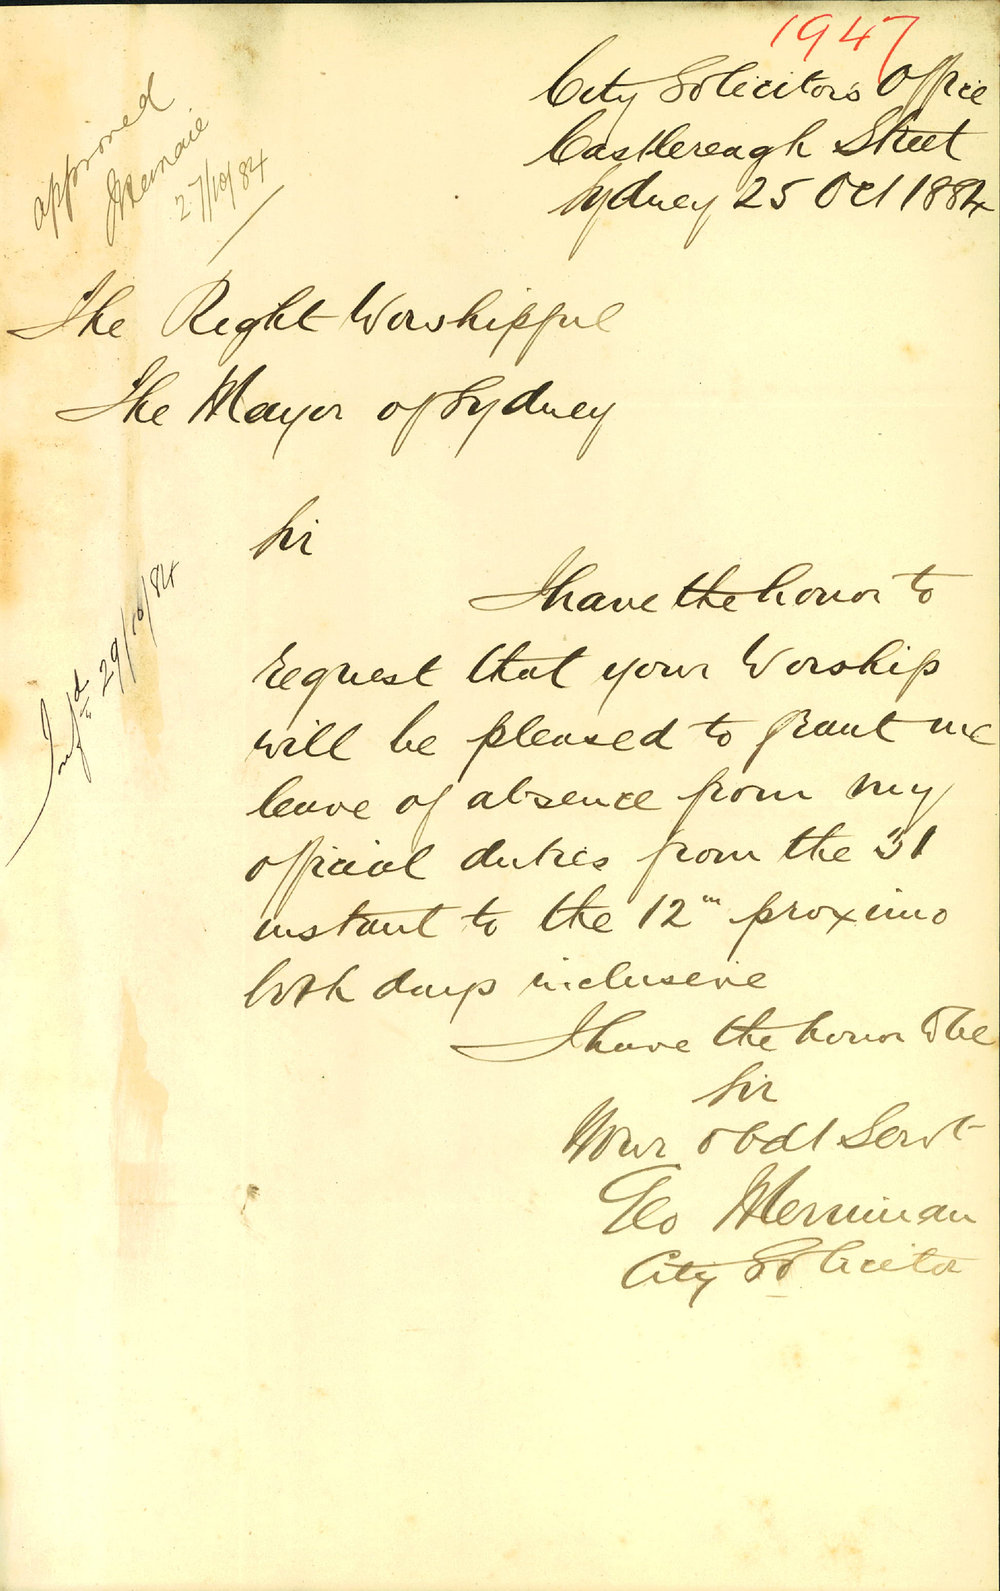 1947
City Solicitor's Office
Castlereagh Street
Sydney 25 Oct 1884
approved
27/10/84
The Right Worshipful
The Mayor of Sydney
Sir
I have the honor to
request that your Worship
will be pleased to grant me
leave of absence from my
official duties from the 31
instant to the 12th proximo
both days inclusive
I have the honor to be
Sir
Your obdt Servt
Geo Merriman
City Solicitor
Infd 29/10/84